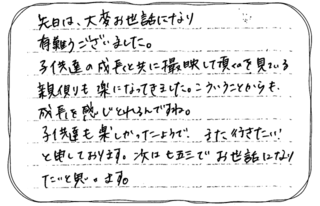 先日は、大変お世話になり
有難うございました。
子供達の成長と共に撮映して頂くのを見ている
親側も楽になってきました。こういうことからも
成長を感じとれるんですね。
子供達も楽しかったようで、また行きたい!
と申しております。次は七五三でお世話になり
たいと思います。